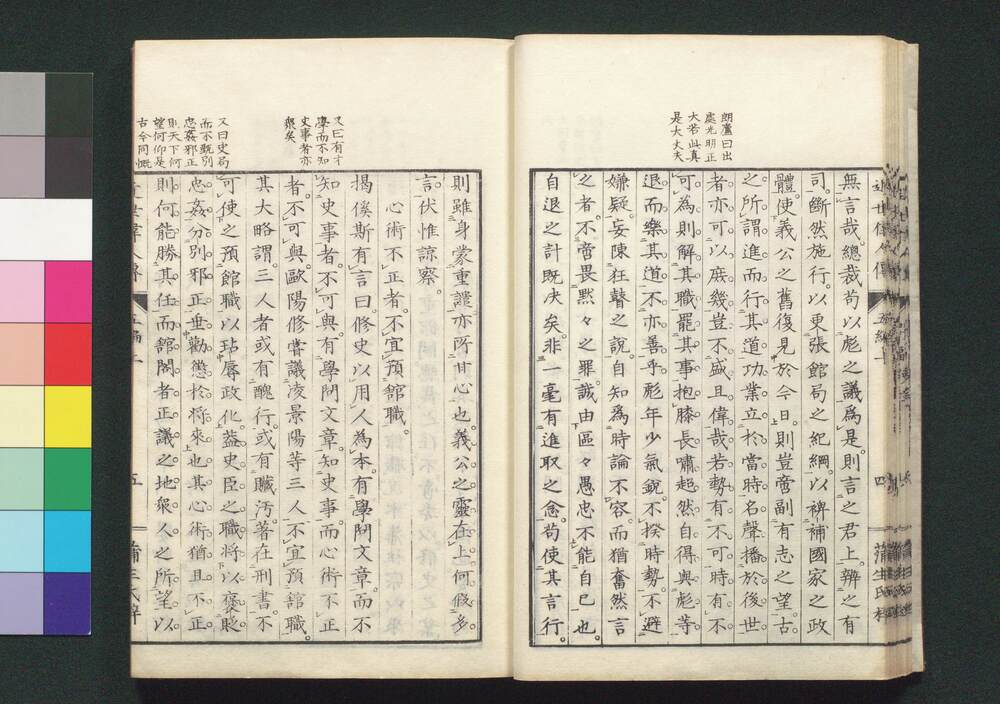 朗廬曰出
處光明正
大若此真
是大丈夫
無言哉。總裁苟以彪之議爲是。則言之君上。辨之有
司。斷然施行。以更張館局之紀綱。以裨補國家之政
體。使義公之舊復見於今日。則豈啻副有志之望。古
之所謂進而行其道。功業立於當時。名聲播於後世
者。亦可以庶幾。豈不盛且偉哉。若勢有不可。時有不
可。爲則解其職。罷其事。抱膝長嘯。超然自得。與彪等
退。而樂其道。不亦善乎。彪年少氣銳。不揆時勢。不避
嫌疑。妄陳狂瞽之說。自知爲時論不容。而猶奮然言
之者。不啻畏默々之罪。誠由區々愚忠不能自已也。
自退之計既决矣。非一毫有進取之念。苟使其言行。
四
又曰有才
學而不知
史事者亦
衆矣
又曰史局
而不甄別
忠姦邪正
則天下何
望何仰是
古今同慨
則雖身蒙重譴。亦所甘心也。義公之靈在上。何假多
言。伏惟諒察。
心術不正者。不宜預館職。
揭傒斯有言曰。修史以用人爲本。有學問文章。而不
知史事者。不可與。有學問文章。知史事。而心術不正
者。不可與。歐陽修嘗議凌景陽等三人不宜預館職。
其大略謂。三人者或有醜行。或有贓汚著在刑書。不
可使之預館職以玷辱政化。葢史臣之職。將以褒貶
忠姦。分別邪正。垂勸懲於將來也。其心術猶且不正。
則何能勝其任。而館閣者正議之地。衆人之所望。以
五